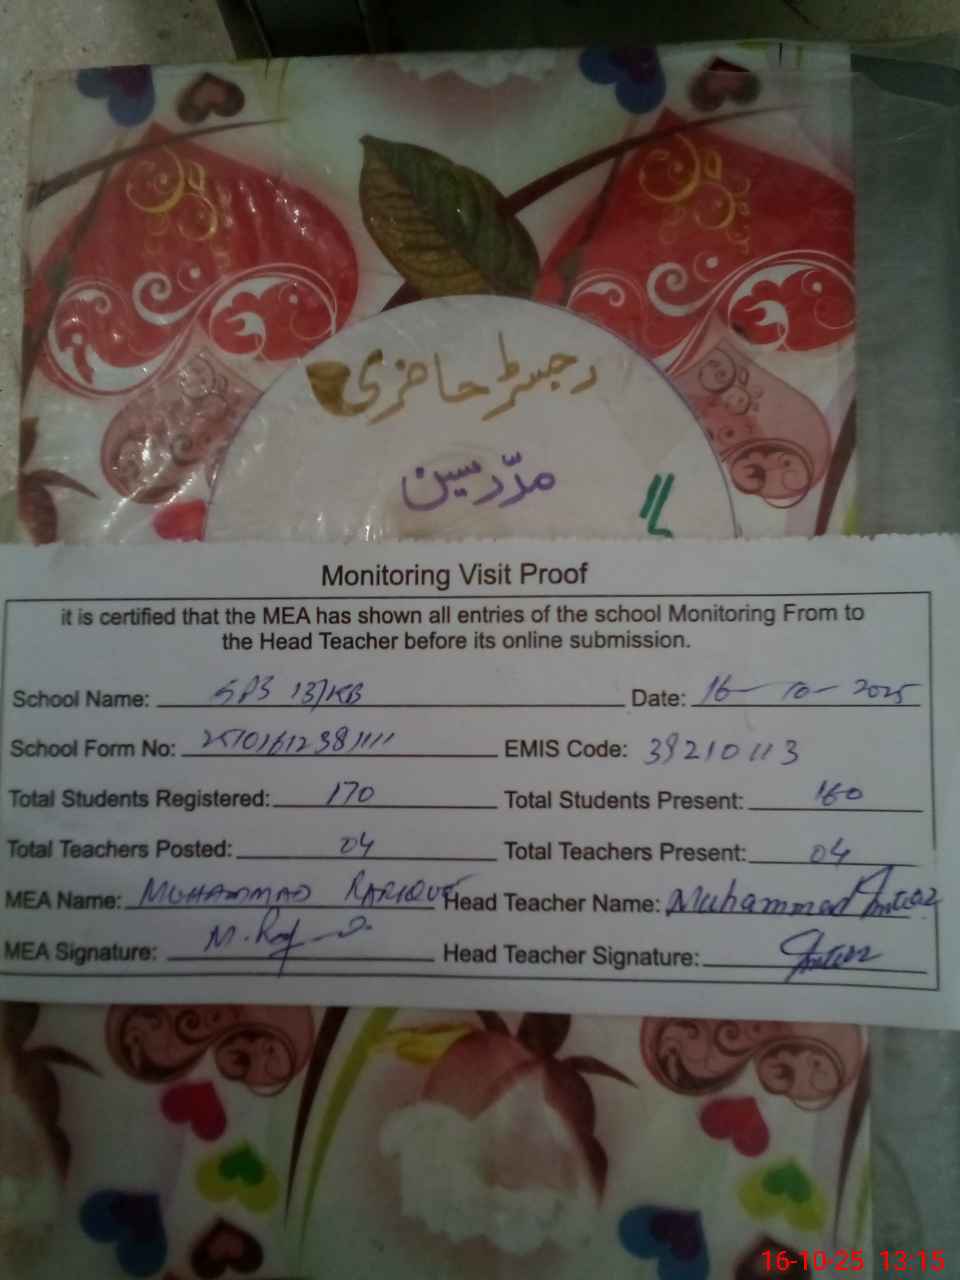 رجسٹر حاضری
مدرّسین
Monitoring Visit Proof
it is certified that the MEA has shown all entries of the school Monitoring From to
the Head Teacher before its online submission.
School Name: GPS 137KB Date: 16-10-2025
School Form No: EMIS Code: 39210113
Total Students Registered: 170 Total Students Present: 160
Total Teachers Posted: 04 Total Teachers Present: 04
MEA Name: MUHAMMAD Head Teacher Name: Muhammad Imtiaz
MEA Signature: Head Teacher Signature: Imtiaz
16-10-25 13:15